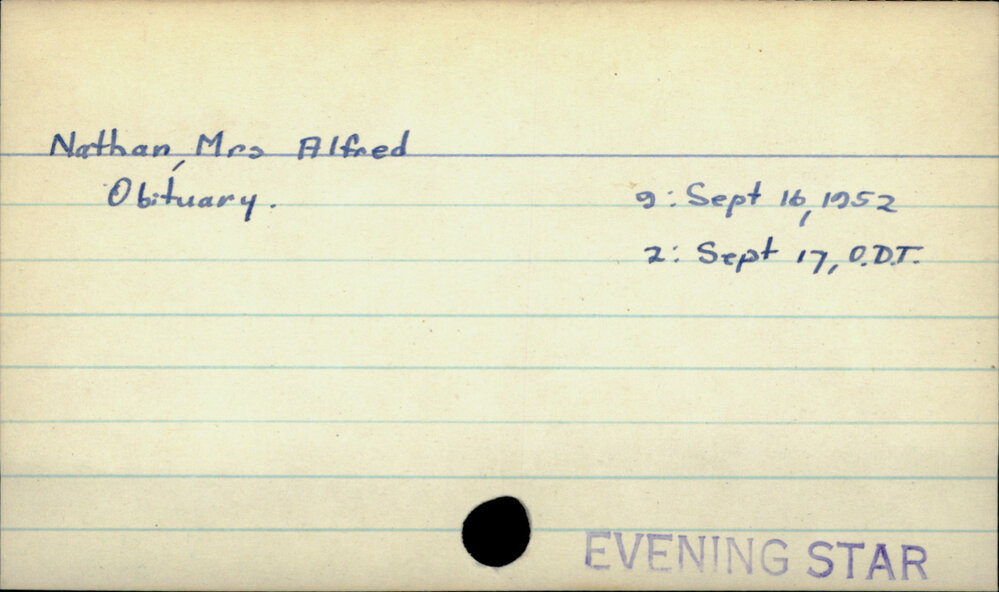 Nathan, Mrs Alfred
Obituary. 9: Sept 16, 1952
2: Sept 17, O.D.T.
EVENING STAR